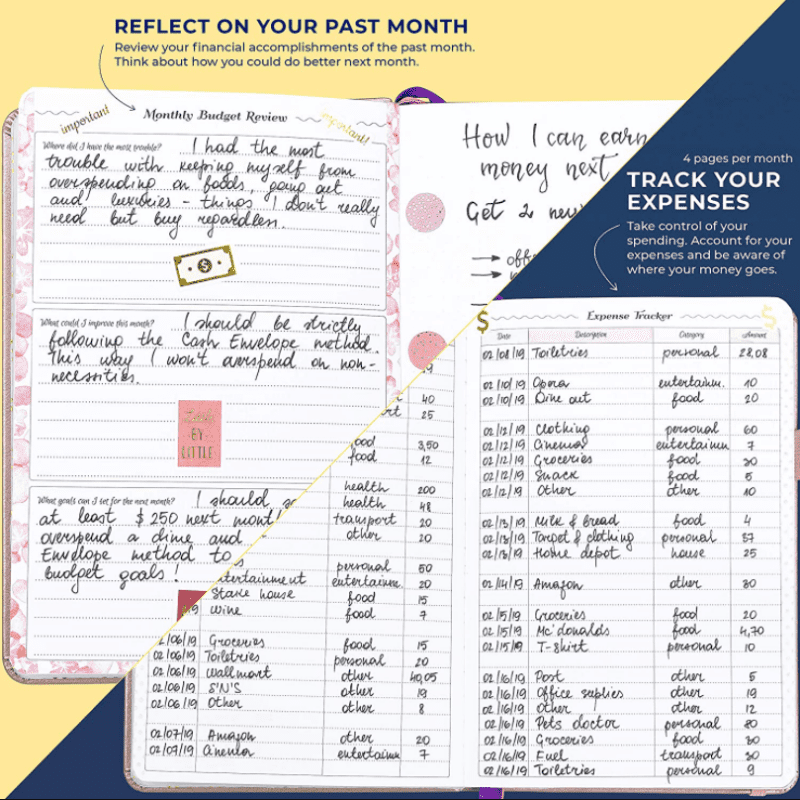 REFLECT ON YOUR PAST MONTH
Review your financial accomplishments of the past month.
Think about how you could do better next month.
important!
Monthly Budget Review
important!
Where did I have the most trouble? I had the most
trouble with keeping myself from
overspending on foods, going out
and luxuries - things I don't really
need but buy regardless.
What could I improve this month? I should be strictly
following the Cash Envelope method.
This way I won't overspend on non-
necessities.
BY
LITTLE
What goals can I set for the next month? I should
at least $250 next mont
overspend a dime and
Envelope method to
budget goals!
How I can earn
money next
Get 2 new
4 pages per month
TRACK YOUR
EXPENSES
Take control of your
spending. Account for your
expenses and be aware of
where your money goes.
40
25
food 3,50
food 12
health 200
health 48
transport 20
other 20
personal 50
entertainment entertainm. 20
Stake house food 15
Wine food 7
02/06/19 Groceries food 15
02/06/19 Toiletries personal 20
02/06/19 Wallmart other 40,05
02/06/19 S'N'S other 19
02/06/19 Other other 8
02/07/19 Amazon other 20
02/07/19 Cinema entertainm 7
$ Expense Tracker $
Date Description Category Amount
02/08/19 Toiletries personal 28,08
02/10/19 Opera entertainm. 10
02/10/19 Dine out food 20
02/12/19 Clothing personal 60
02/12/19 Cinema entertainm 7
02/12/19 Groceries food 30
02/12/19 Snack food 5
02/12/19 Other other 10
02/13/19 Milk & bread food 4
02/13/19 Target & clothing personal 57
02/13/19 Home depot house 25
02/14/19 Amazon other 80
02/15/19 Groceries food 20
02/15/19 Mc'donalds food 4,70
02/15/19 T-shirt personal 10
02/16/19 Post other 5
02/16/19 Office suplies other 19
02/16/19 Other other 12
02/16/19 Pets doctor personal 80
02/16/19 Groceries food 30
02/16/19 Fuel transport 30
02/16/19 Toiletries personal 9